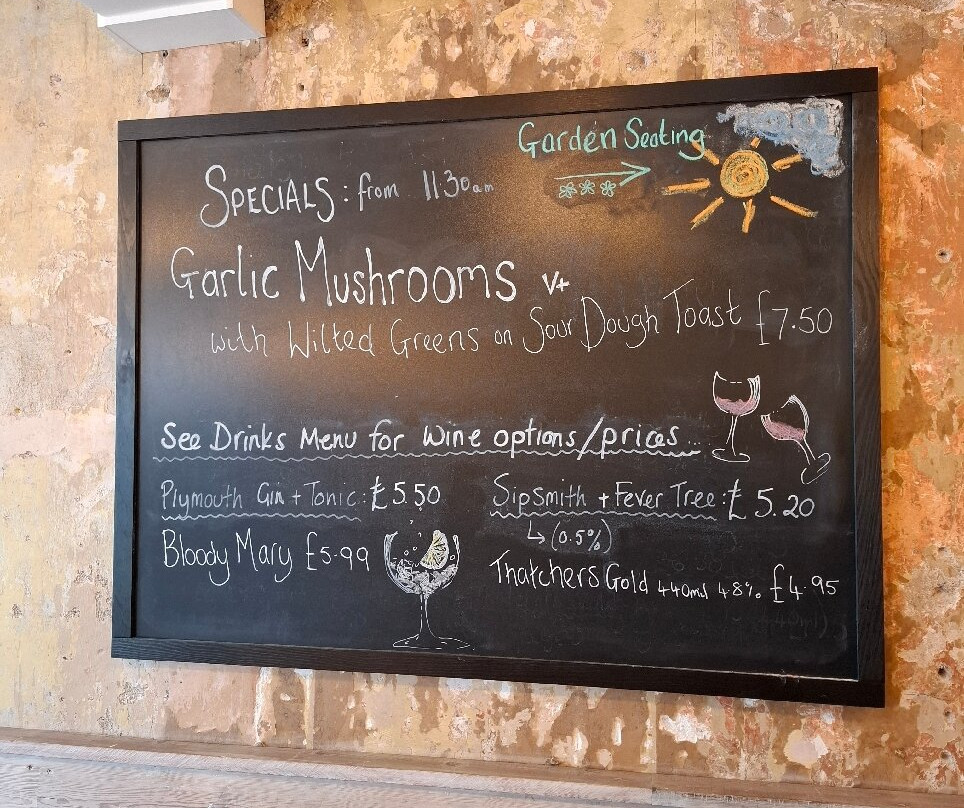 Garden Seating
SPECIALS: from 11:30am
Garlic Mushrooms V+
with Wilted Greens on Sour Dough Toast £7.50
See Drinks Menu for Wine options/prices...
Plymouth Gin + Tonic: £5.50
Sipsmith + Fever Tree: £5.20
↳ (0.5%)
Bloody Mary £5.99
Thatchers Gold 440ml 4.8% £4.95